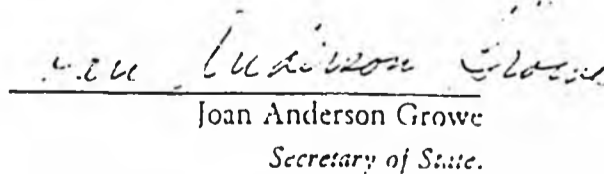 Joan Anderson Growe
Joan Anderson Growe
Secretary of State.